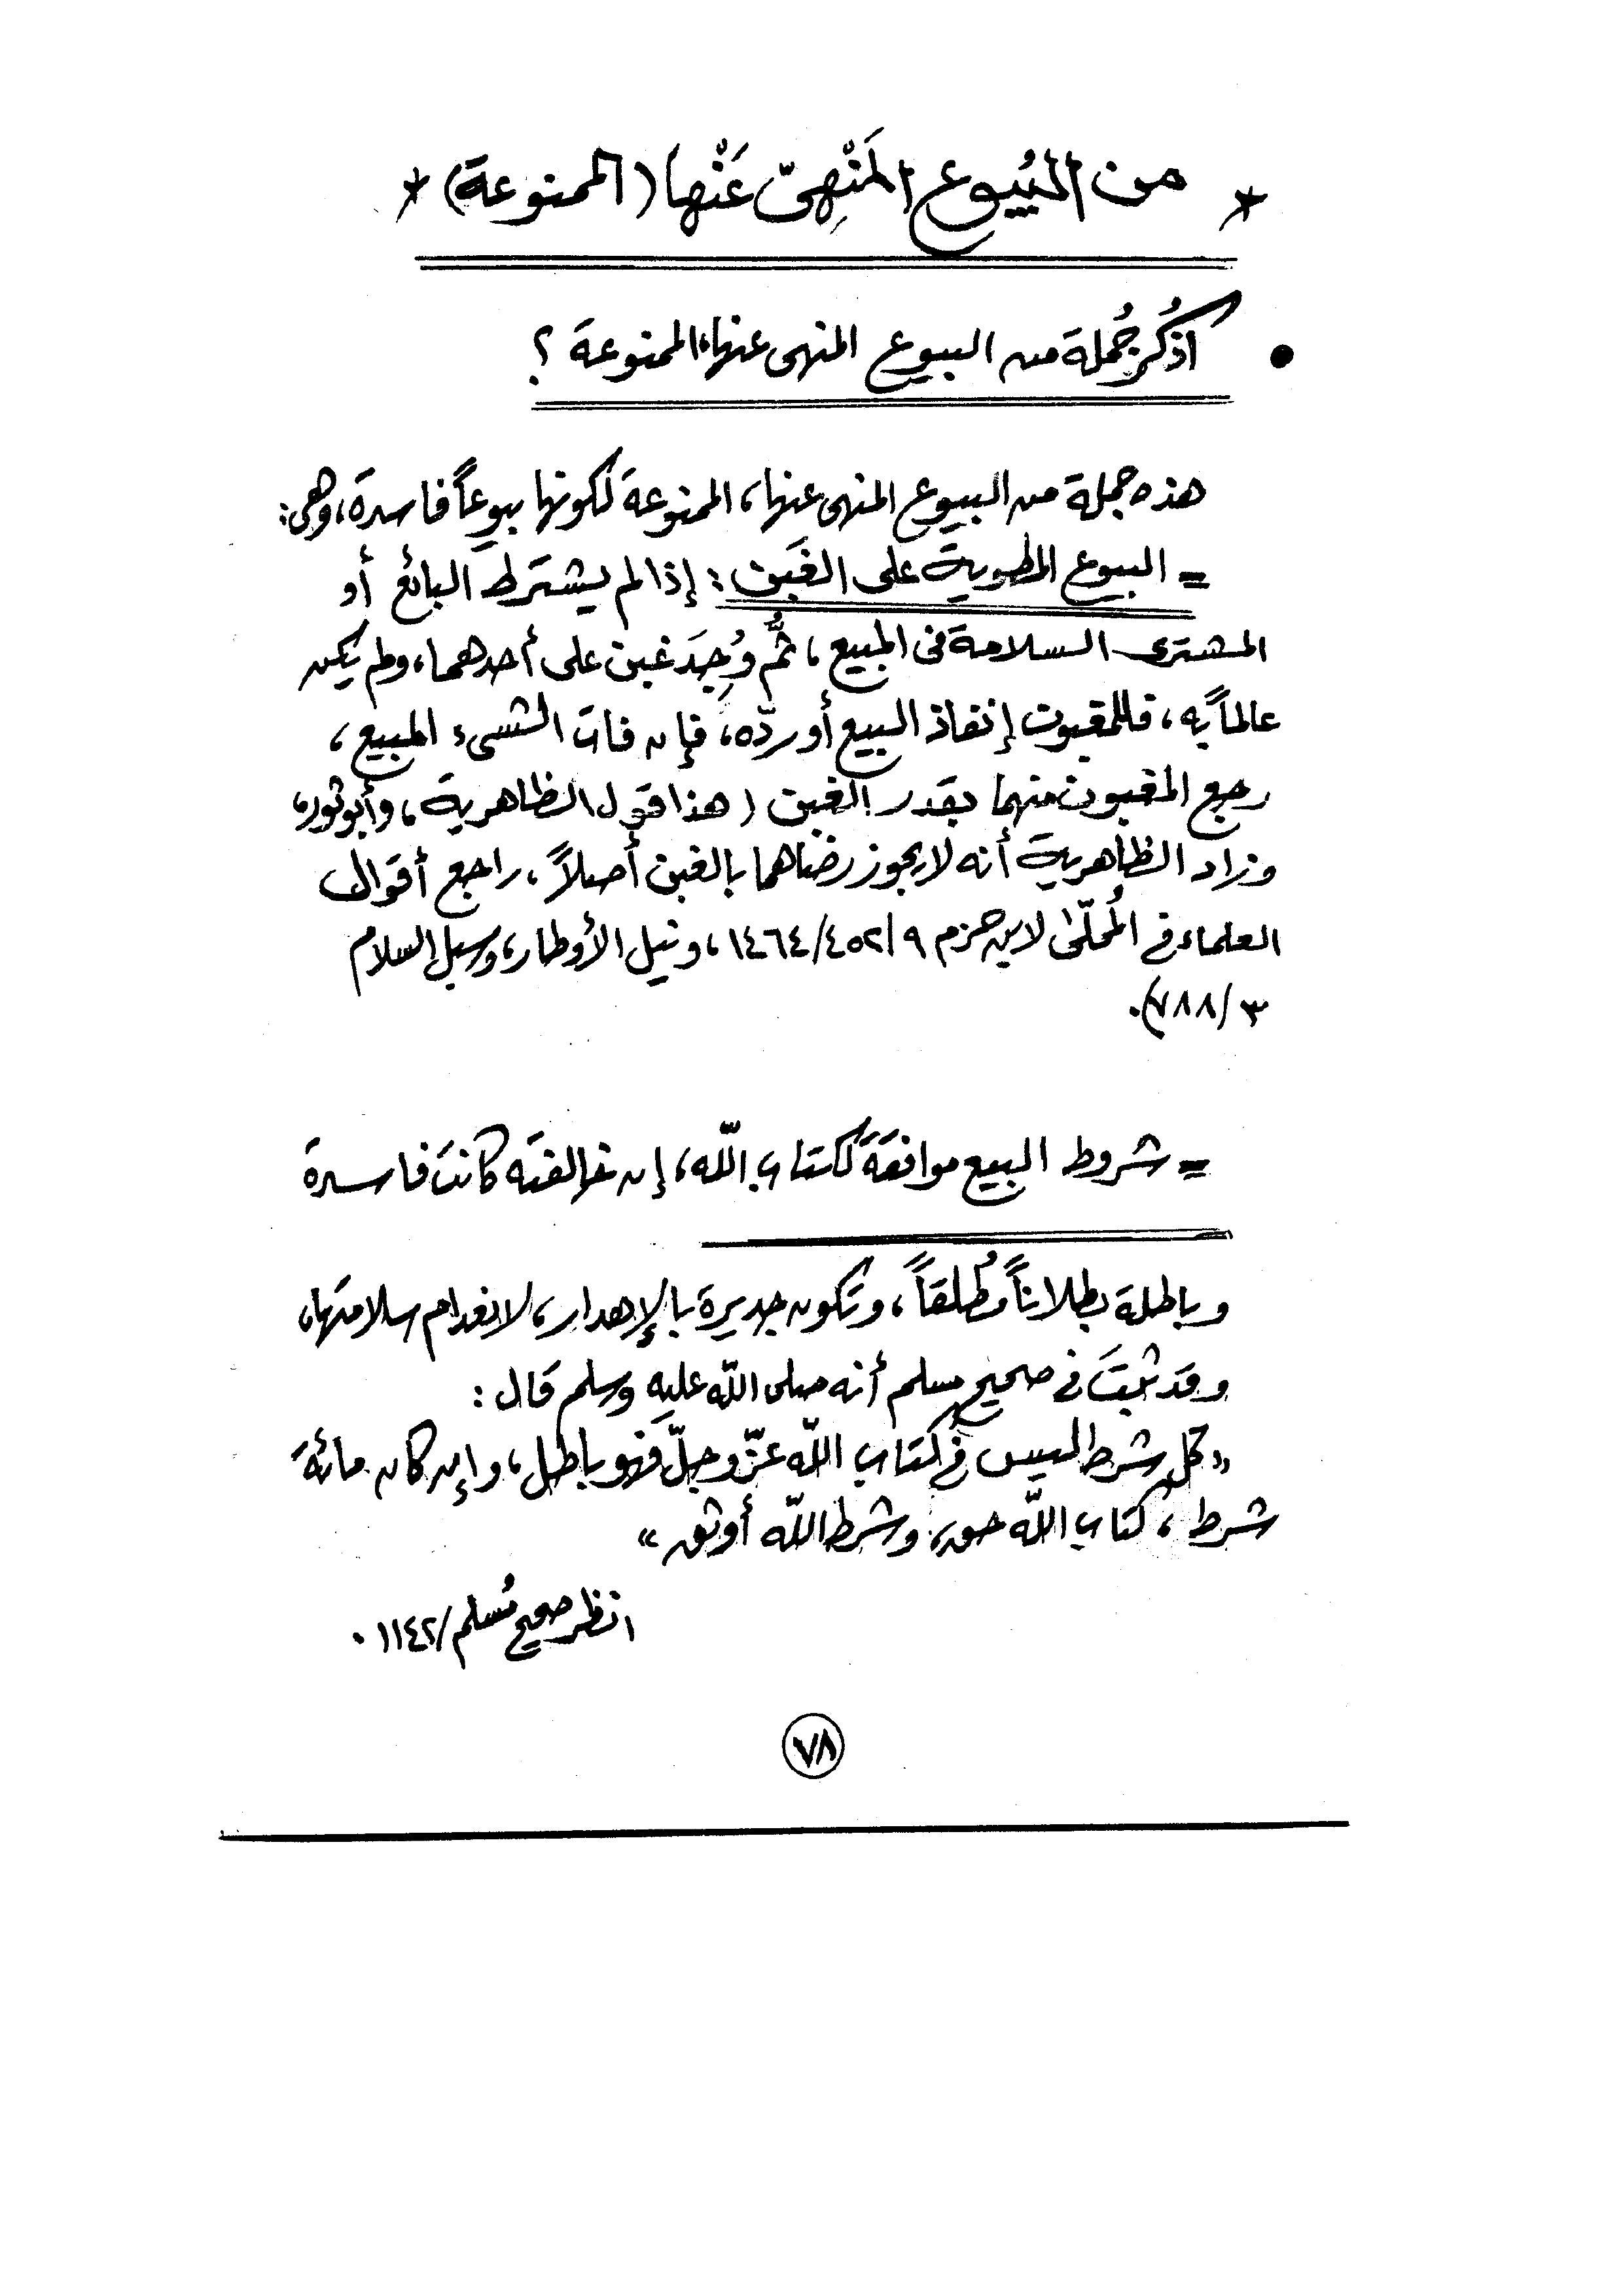 * من البُيوع المَنْهِيّ عَنْها (الممنوعة) *
• اذكُر جُملة من البيوع المنهى عنها، الممنوعة ؟
هذه جملة من البيوع المنهى عنها، الممنوعة لكونها بيوعاً فاسدة، وهى:
= البيوع المطوية على الغَبَن : إذا لم يشترط البائع أو
المشترى السلامة فى المبيع، ثُمَّ وُجِدَ غبن على أحدهما، ولم يكن
عالماً به، فللمغبون إنفاذ البيع أو ردّه، فإن فات الشىء المبيع،
رجع المغبون منهما بقدر الغبن (هذا قول الظاهرية، وأبو ثور،
وزاد الظاهرية أنه لا يجوز رضاهما بالغبن أصلاً، راجع أقوال
العلماء فى المُحلّى لابن حزم ٩/٤٥٢/١٤٦٤، ونيل الأوطار، وسبل السلام
٣/٧٨٨).
= شروط البيع موافقةً لكتاب اللّه، إن خالفته كانت فاسدة
وباطلة بطلاناً مُطلقاً، وتكون جديرة بالإهدار، لانعدام سلامتها،
وقد ثبتَ فى صحيح مسلم أنه صلى اللّه عليه وسلم قال :
«كل شرط ليس فى كتاب اللّه عزّ وجلّ فهو باطل، وإن كان مائة
شرط، كتاب اللّه حق، وشرط اللّه أوثق»
انظر صحيح مُسلم/١١٤٢.
٧٨